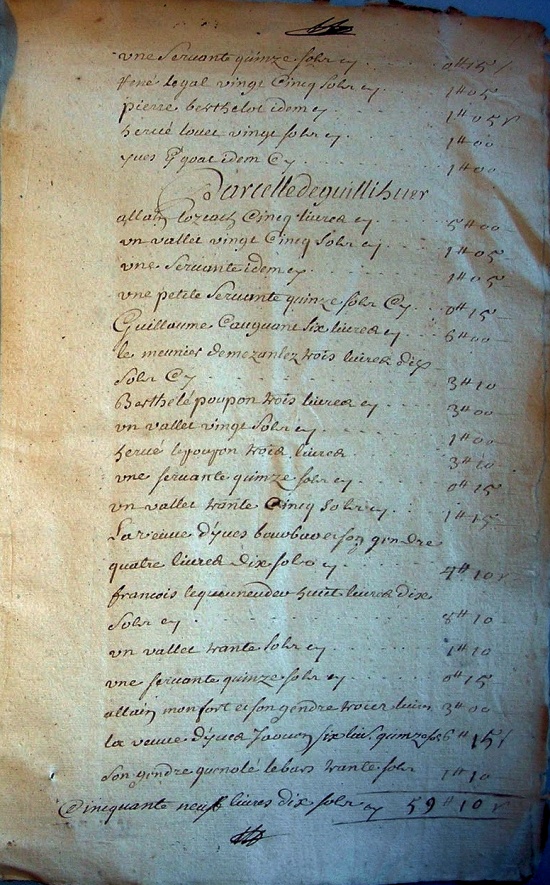 vne servante quinze sols cy . . . 0# 15
hené legal vingt cinq sols cy . . 1# 05
pierre berthelot idem cy . . . 1# 05
hervé louet vingt sols cy . . . 1# 00
yves idem Cy . . . 1# 00
Parcelle de quillihuer
allain lozeach Cinq livres cy . . . 5# 00
vn vallet vingt Cinq sols cy . . . 1# 05
vne servante idem cy . . . 1# 05
vne petite servante quinze sols Cy . . 0# 15
Guillaume Cauquant six livres cy . . 6# 00
le meunier demezanlez trois livres dix
sols Cy . . . 3# 10
Berthelé poupon trois livres cy . . 3# 00
vn vallet vingt sols cy . . . 1# 00
hervé lepoupon trois livres . . 3# 10
vne servante quinze sols cy . . 0# 15
vn vallet trante Cinq sols cy . . 1# 15
La veuve d'yves et son gendre
quatre livres dix sols cy . . . 4# 10
francois huict livres dix
sols cy . . . 8# 10
vn vallet trante sols cy . . . 1# 10
vne servante quinze sols cy . . 0# 15
allain monfort et son gendre trois livres 3# 00
la veuve d'yves Jaouen six liv. quinze s 6# 15
son gendre guenolé lebars trante sols 1# 10
Cinquante neuf livres dix sols cy 59# 10